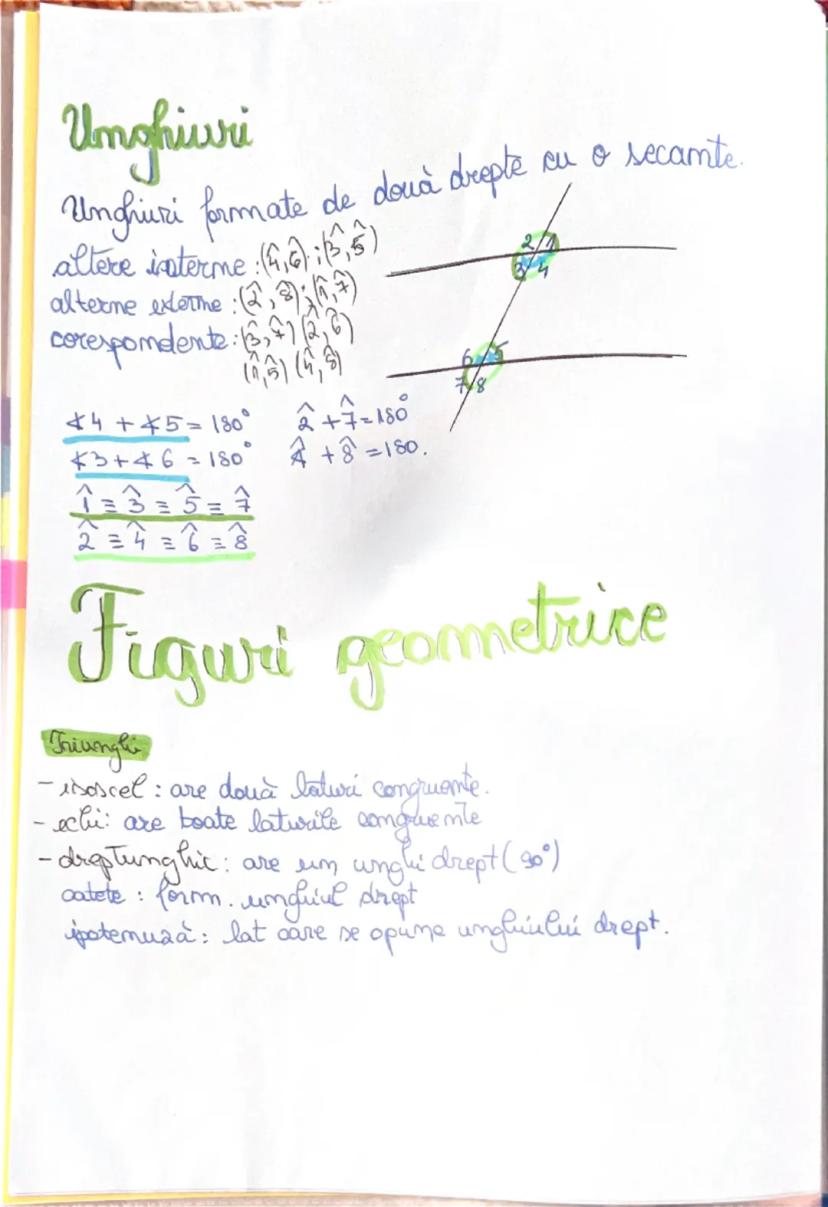 Unghiuri
Unghiuri formate de două drepte cu o secante.
altere interne : (4̂,6̂) ; (3̂,5̂)
alterne externe : (2̂,8̂) ; (1̂,7̂)
corespondente : (3̂,7̂) (2̂,6̂)
(1̂,5̂) (4̂,8̂)
2 1
3 4
6 5
7 8
∢4 + ∢5 = 180° 2̂ + 7̂ = 180°
∢3 + ∢6 = 180° + 8̂ = 180.
1̂ ≡ 3̂ ≡ 5̂ ≡ 7̂
2̂ ≡ 4̂ ≡ 6̂ ≡ 8̂
Figuri geometrice
Triunghi
- isoscel : are două laturi congruente.
- echi: are toate laturile congruente
- dreptunghic : are un unghi drept (90°)
catete : form. unghiul drept
ipotenuză : lat care se opune unghiului drept.